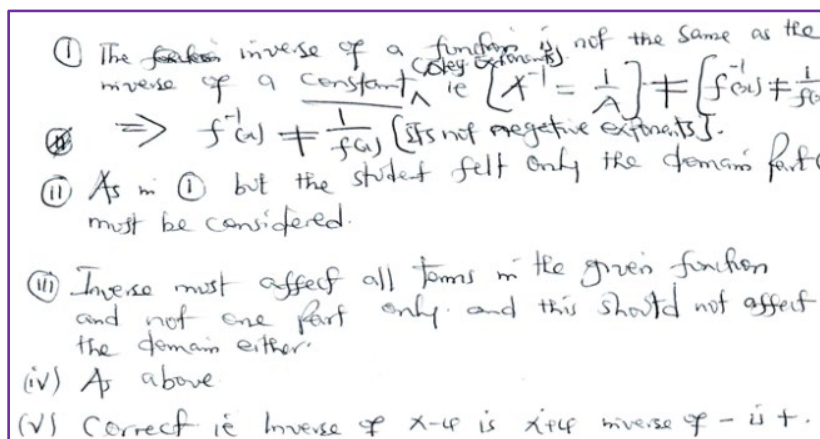 (i) The inverse of a function is not the same as the
inverse of a constant (obey exponents) ie [A⁻¹ = 1/A] ≠ [f⁻¹(x) ≠ 1/f(x)
⇒ f⁻¹(x) ≠ 1/f(x) [Its not negetive exponents].
(ii) As in (i) but the student felt only the domain part
must be considered.
(iii) Inverse must affect all terms in the given function
and not one part only and this should not affect
the domain either.
(iv) As above
(v) Correct ie Inverse of x-4 is x+4 inverse of - is +.